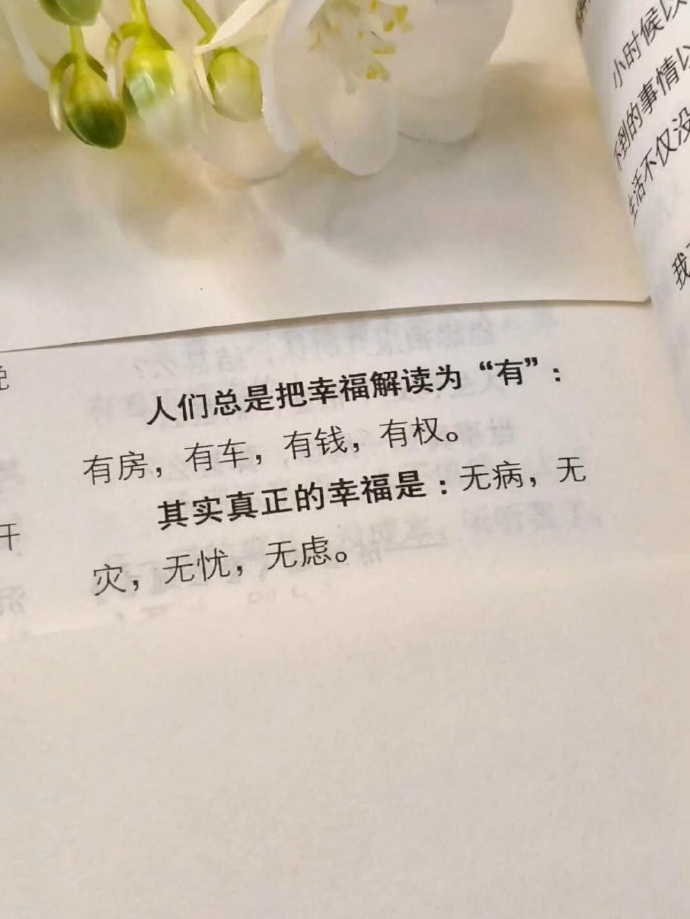 人们总是把幸福解读为“有”：
有房，有车，有钱，有权。
其实真正的幸福是：无病，无
灾，无忧，无虑。
小时候以
不到的事情以
生活不仅没
我